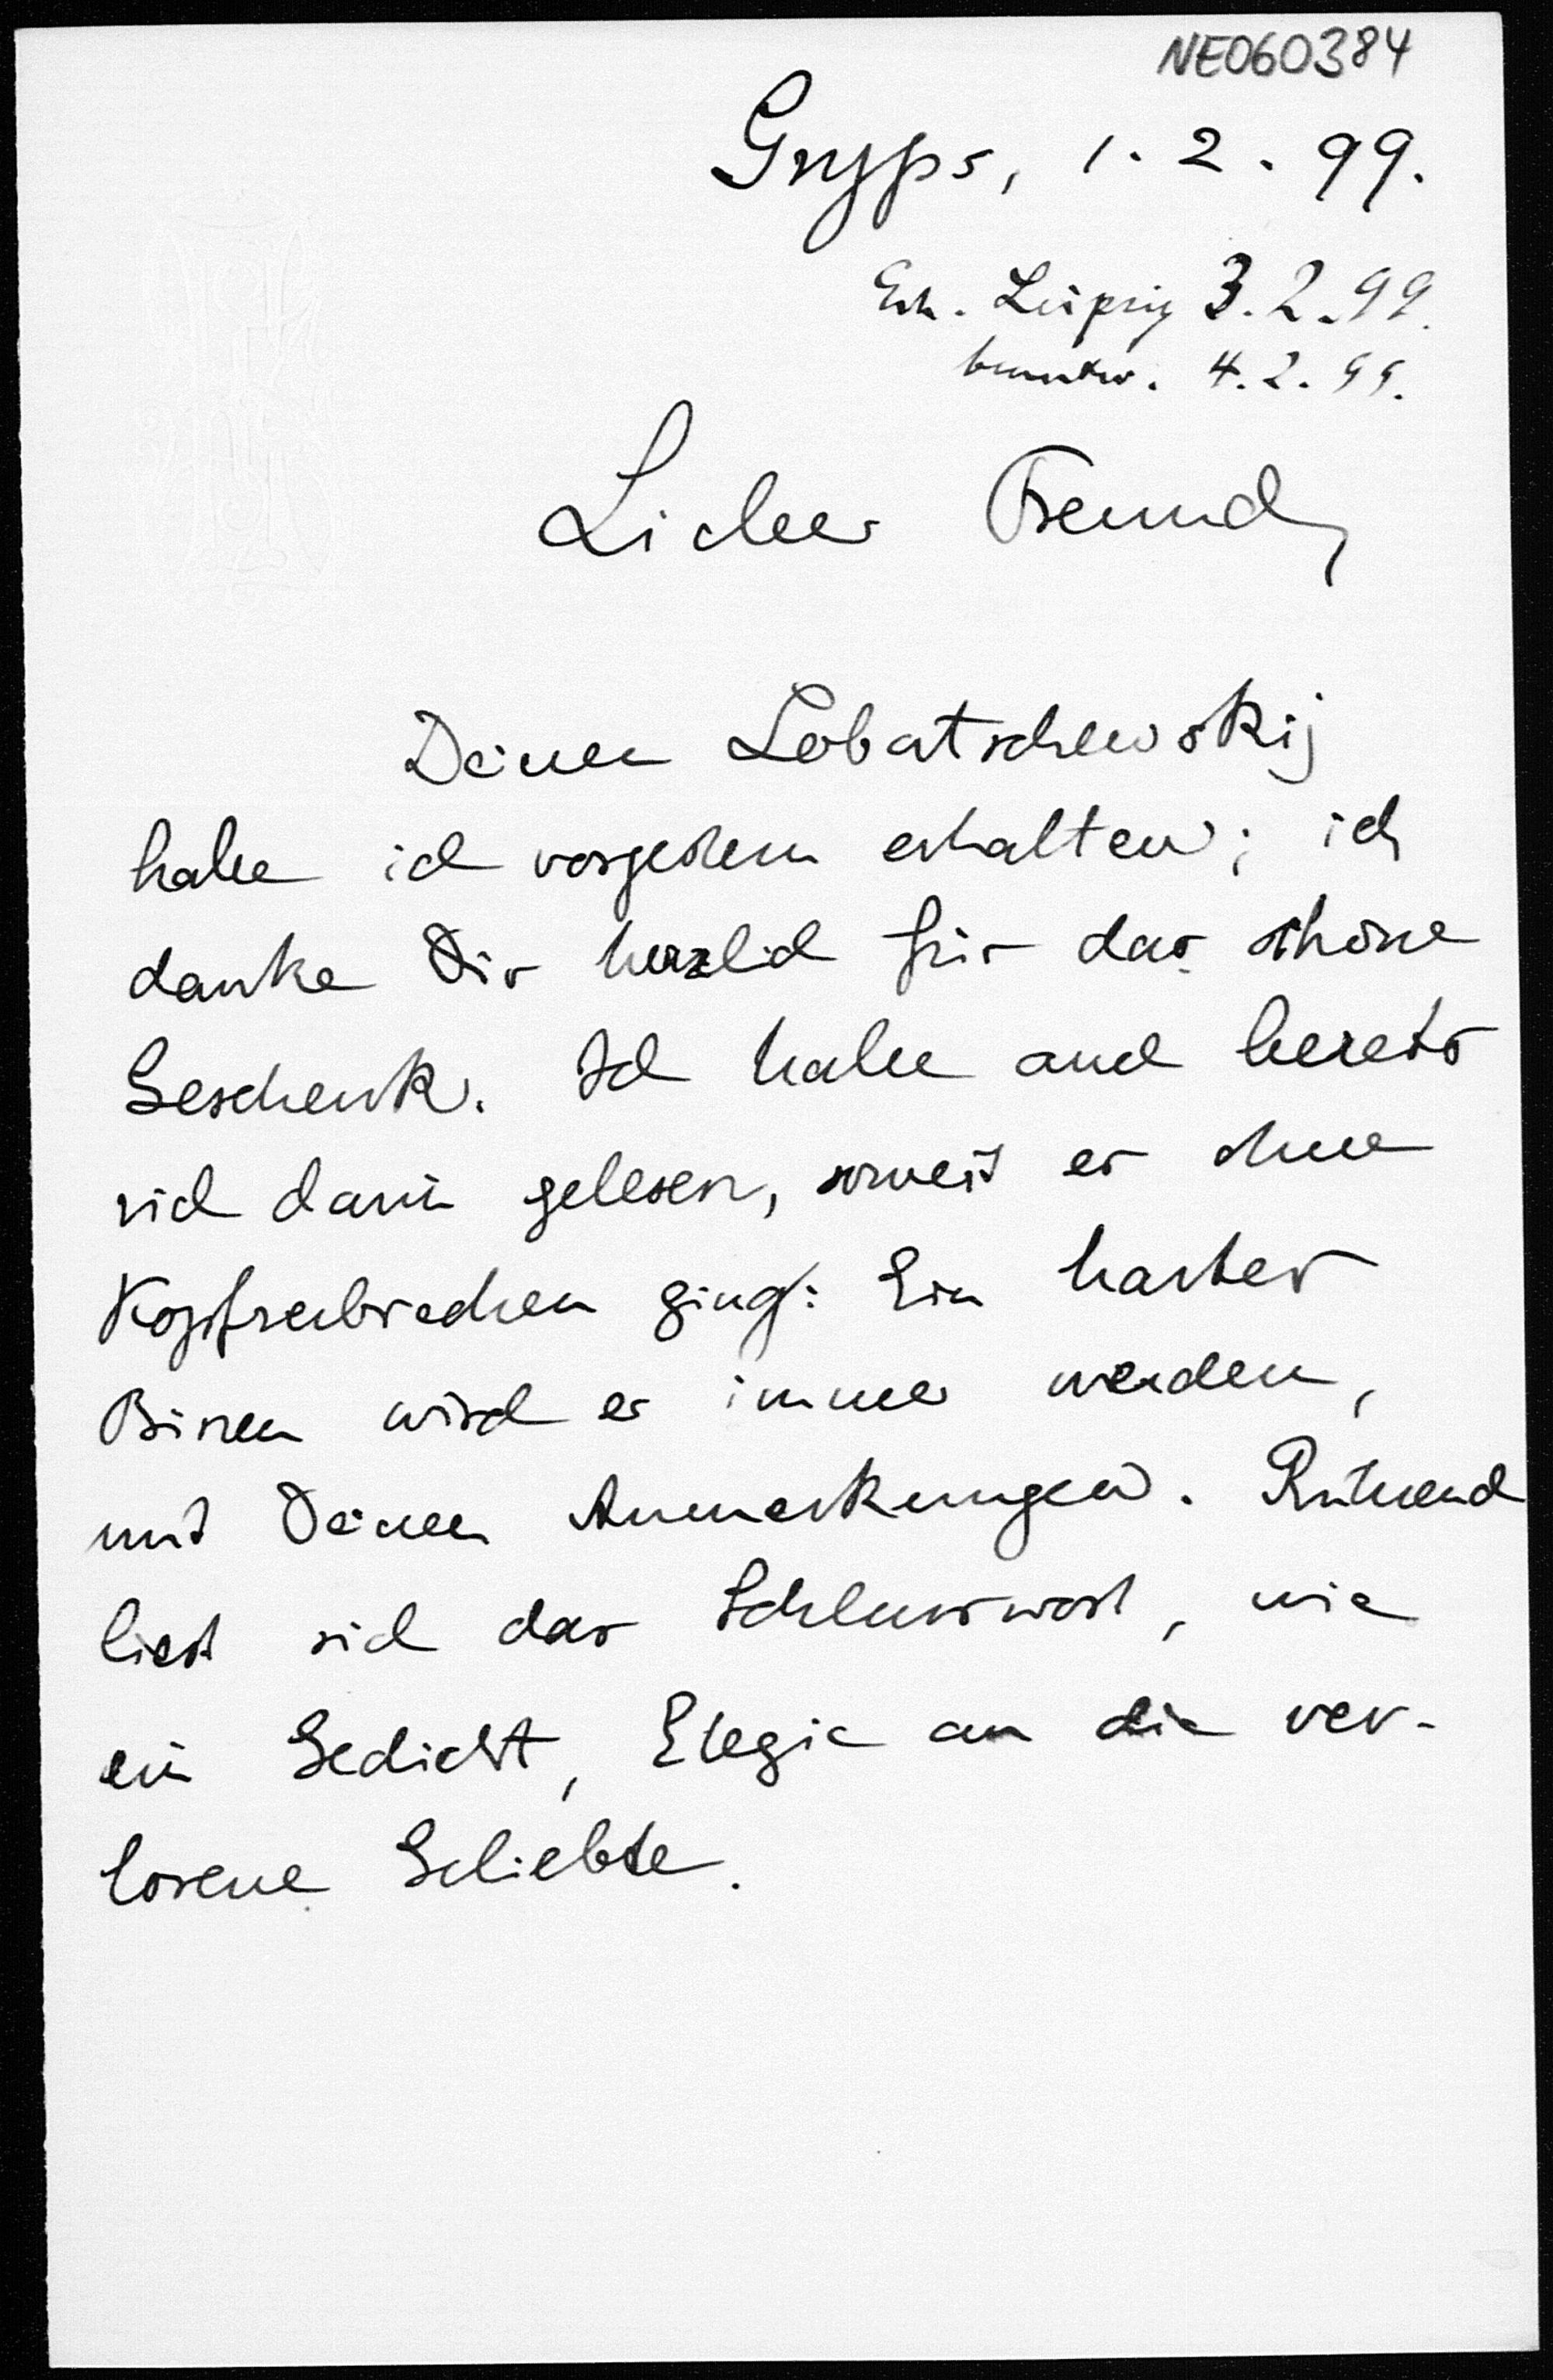 NE060384
Gryps, 1. 2. 99.
Erh. Leipzig 3. 2. 99.
beantw. 4. 2. 99.
Lieber Freund,
Deinen Lobatschewskij
habe ich vorgestern erhalten; ich
danke Dir herzlich für das schöne
Geschenk. Ich habe auch bereits
viel darin gelesen, soweit es ohne
Kopfzerbrechen ging: Ein harter
Bissen wird es immer werden,
mit Deinen Anmerkungen. Rührend
liest sich das Schlusswort, wie
ein Gedicht, Elegie an die ver-
lorene Geliebte.